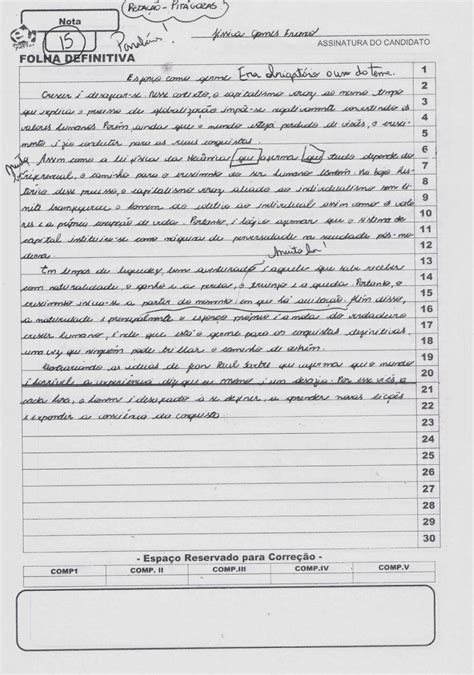 REDAÇÃO - PITÁGORAS
Nota
15
Parabéns!
Gomes
ASSINATURA DO CANDIDATO
FOLHA DEFINITIVA
Espaço como germe Era obrigatório o uso do tema.
Crescer é desapegar-se. Nesse contexto, o capitalismo voraz ao mesmo tempo
que explica o processo de globalização impõe-se negativamente convertendo os
valores humanos. Porém, ainda que o mundo esteja perdido de visões, o cresci-
mento é fio condutor para as suas conquistas.
Assim como a lei física da Mecânica que afirma que tudo depende do
referencial, o caminho para o crescimento do ser humano também. No bojo his-
tórico desse processo, o capitalismo voraz aliado ao individualismo sem li-
mite o homem do coletivo ao individual assim como os valo-
res e a própria de vida. Portanto, é lógico afirmar que o sistema do
capital institui-se como máquina de perversidade na sociedade pós-mo-
derna.
Muito boa!
Em tempos de liquidez, bem aventurado é aquele que sabe receber
com naturalidade o ganho e a perda, o triunfo e a queda. Portanto, o
crescimento inicia-se a partir do momento em que há aceitação. Além disso,
a maturidade e principalmente o esforço próprio é o motor do verdadeiro
crescer humano, é ele que está o germe para as conquistas definitivas,
uma vez que ninguém pode trilhar o caminho de outrem.
as ideias de Jean Paul Sartre que afirma que o mundo
é horrível, a experiência diz que eu mesmo é um desafio. Por esse viés, a
cada hora, o homem é desafiado a se definir, a aprender novas lições
e expandir a consciência da conquista.
1
2
3
4
5
6
7
8
9
10
11
12
13
14
15
16
17
18
19
20
21
22
23
24
25
26
27
28
29
30
- Espaço Reservado para Correção -
COMP1 COMP. II COMP.III COMP.IV COMP.V